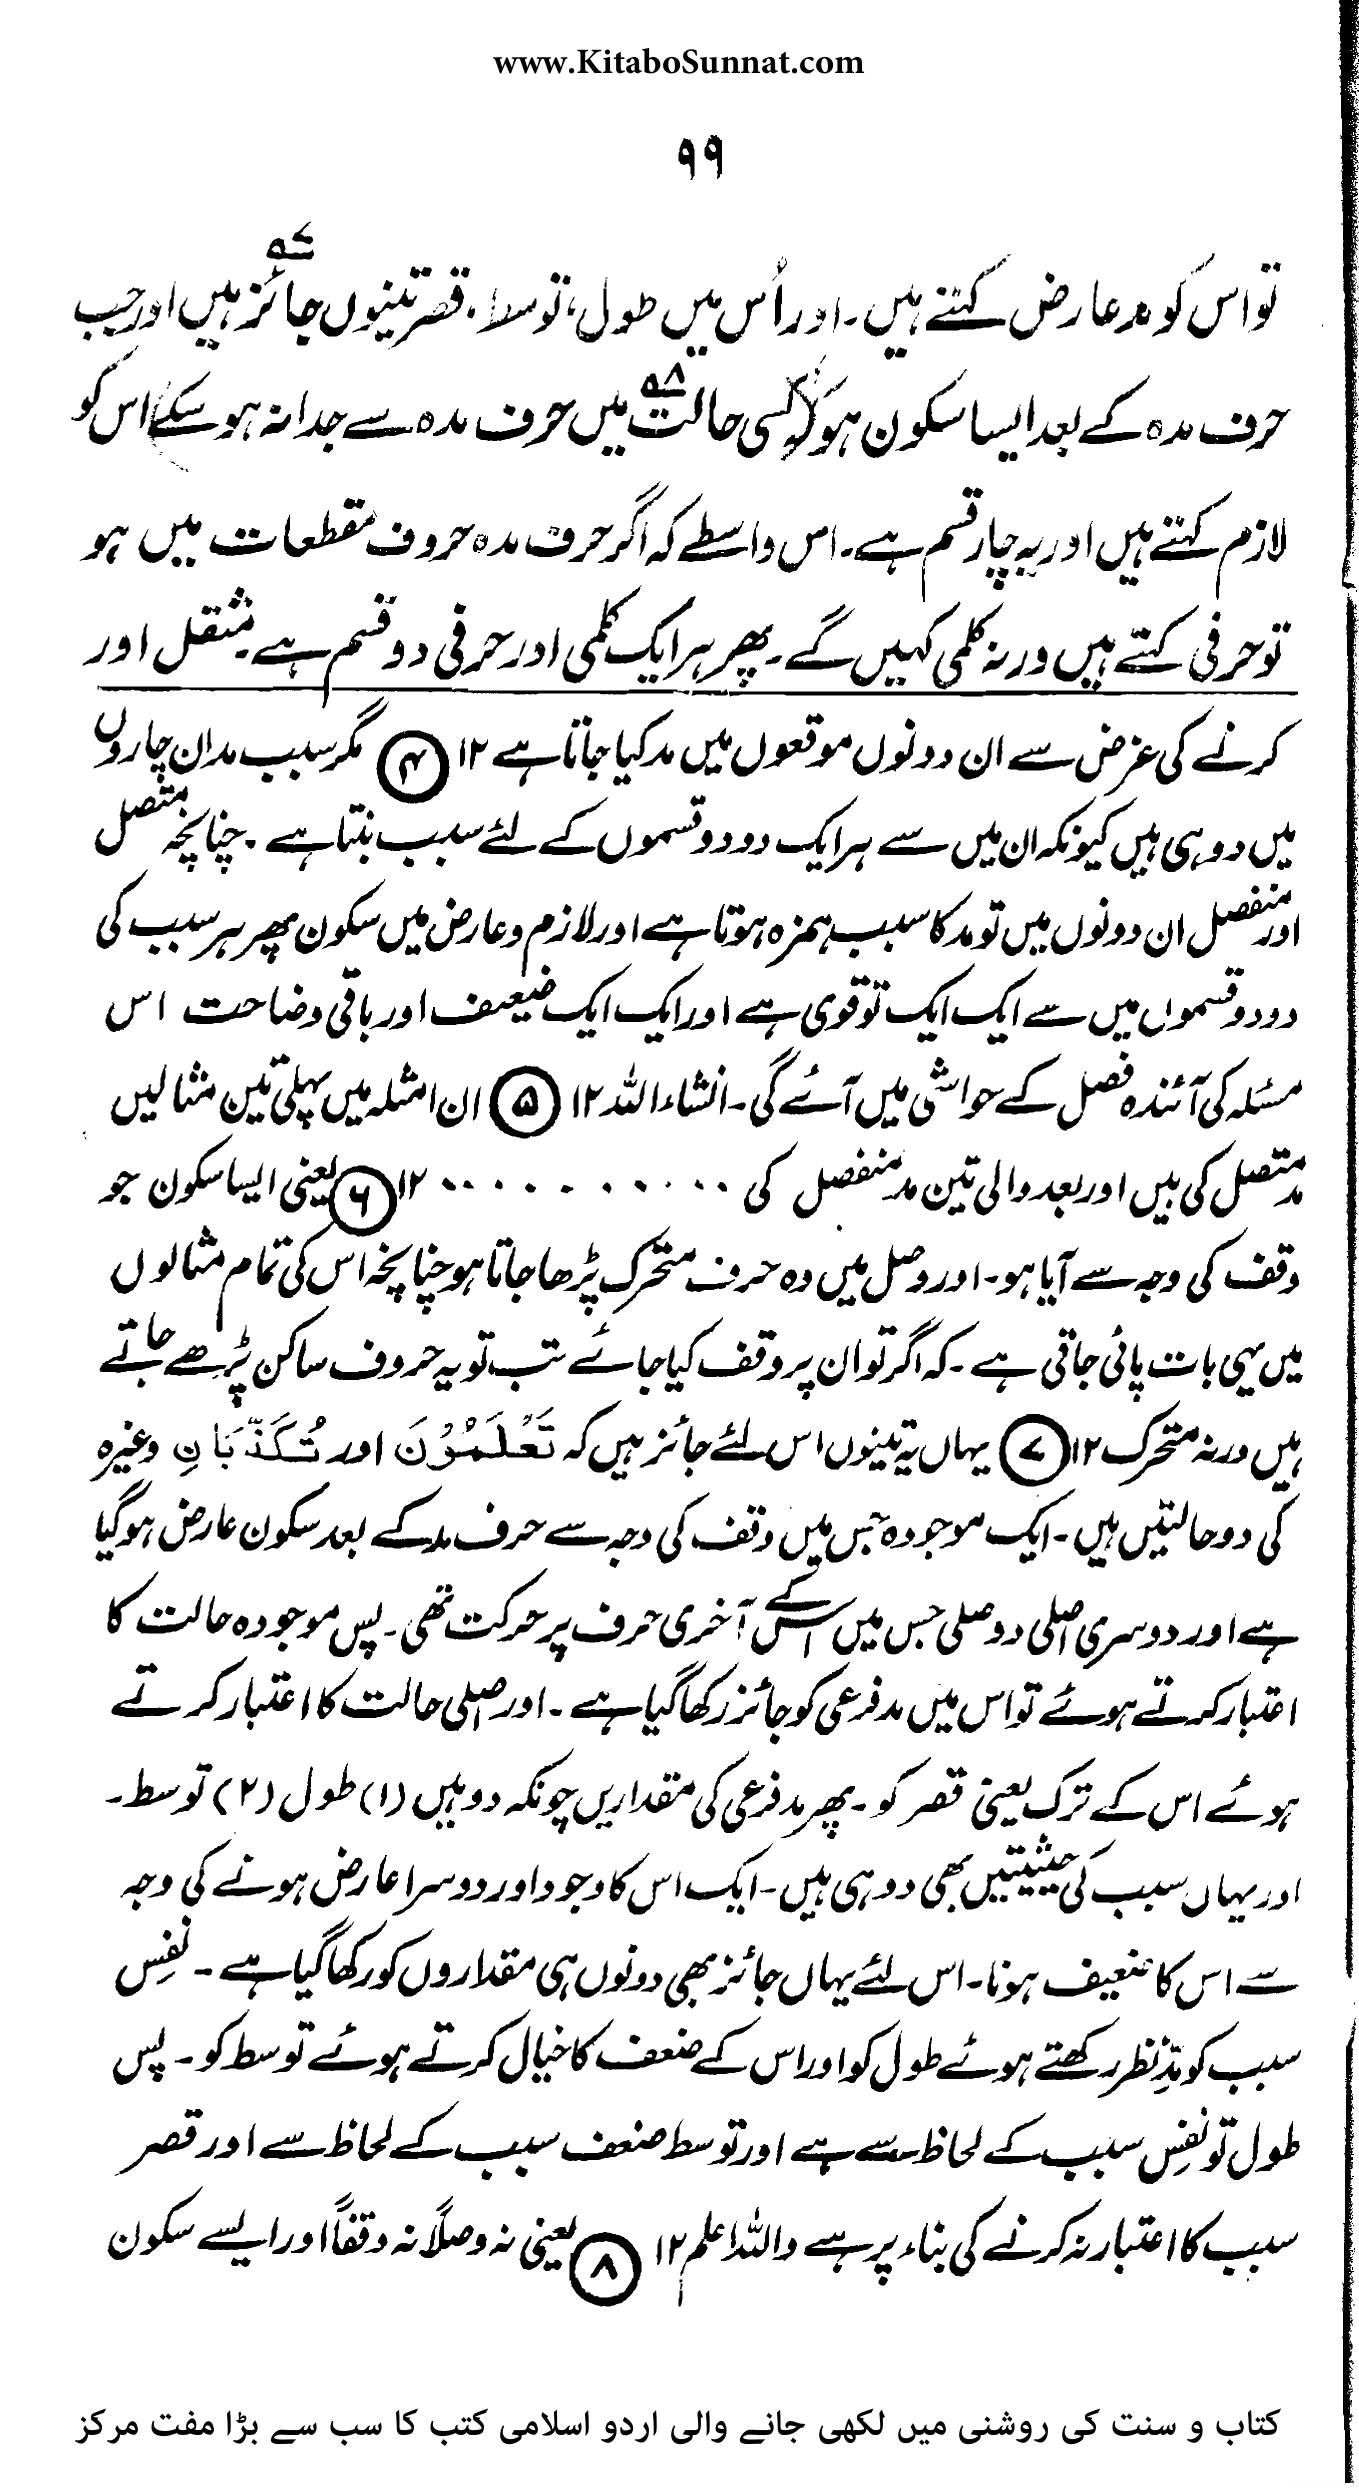 www.KitaboSunnat.com
۹۹
تو اس کو مد عارض کہتے ہیں۔ اور اُس میں طول، توسط، قصر تینوں جائز ہیں اور جب
حرف مدہ کے بعد ایسا سکون ہو کہ کسی حالت میں حرف مدہ سے جدا نہ ہو سکے اس کو
لازم کہتے ہیں اور یہ چار قسم ہے۔ اس واسطے کہ اگر حرف مدہ حروف مقطعات میں ہو
تو حرفی کہتے ہیں ورنہ کلمی کہیں گے۔ پھر ہر ایک کلمی اور حرفی دو قسم ہے۔ مثقل اور
کرنے کی غرض سے ان دونوں موقعوں میں مد کیا جاتا ہے ۱۲ ۴ مگر سبب مد ان چاروں
میں دو ہی ہیں کیونکہ ان میں سے ہر ایک دو دو قسموں کے لئے سبب بنتا ہے۔ چنانچہ متصل
اور منفصل ان دونوں میں تو مد کا سبب ہمزہ ہوتا ہے اور لازم و عارض میں سکون پھر ہر سبب کی
دو دو قسموں میں سے ایک ایک تو قوی ہے اور ایک ایک ضعیف اور باقی وضاحت اس
مسئلہ کی آئندہ فصل کے حواشی میں آئے گی۔ انشاء اللہ ۱۲ ۵ ان امثلہ میں پہلی تین مثالیں
مد متصل کی ہیں اور بعد والی تین مد منفصل کی ۔۔۔۔۔۔۔۔۔۔ ۱۲ ۶ یعنی ایسا سکون جو
وقف کی وجہ سے آیا ہو۔ اور وصل میں وہ حرف متحرک پڑھا جاتا ہو چنانچہ اس کی تمام مثالوں
میں یہی بات پائی جاتی ہے۔ کہ اگر تو ان پر وقف کیا جائے تب تو یہ حروف ساکن پڑھے جاتے
ہیں ورنہ متحرک ۱۲ ۷ یہاں یہ تینوں اس لئے جائز ہیں کہ تَعْلَمُوْنَ اور تُكَذِّبَانِ وغیرہ
کی دو حالتیں ہیں۔ ایک موجودہ جس میں وقف کی وجہ سے حرف مد کے بعد سکون عارض ہو گیا
ہے اور دوسری اصلی و وصلی جس میں اس کے آخری حرف پر حرکت تھی۔ پس موجودہ حالت کا
اعتبار کرتے ہوئے تو اس میں مد فرعی کو جائز رکھا گیا ہے۔ اور اصلی حالت کا اعتبار کرتے
ہوئے اس کے ترک یعنی قصر کو۔ پھر مد فرعی کی مقداریں چونکہ دو ہیں (۱) طول (۲) توسط۔
اور یہاں سبب کی حیثیتیں بھی دو ہی ہیں۔ ایک اس کا وجود اور دوسرا عارض ہونے کی وجہ
سے اس کا ضعیف ہونا۔ اس لئے یہاں جائز بھی دونوں ہی مقداروں کو رکھا گیا ہے۔ نفسِ
سبب کو مدِّنظر رکھتے ہوئے طول کو اور اس کے ضعف کا خیال کرتے ہوئے توسط کو۔ پس
طول تو نفسِ سبب کے لحاظ سے ہے اور توسط ضعف سبب کے لحاظ سے اور قصر
سبب کا اعتبار نہ کرنے کی بناء پر ہے واللہ اعلم ۱۲ ۸ یعنی نہ وصلًا نہ وقفًا اور ایسے سکون
کتاب و سنت کی روشنی میں لکھی جانے والی اردو اسلامی کتب کا سب سے بڑا مفت مرکز